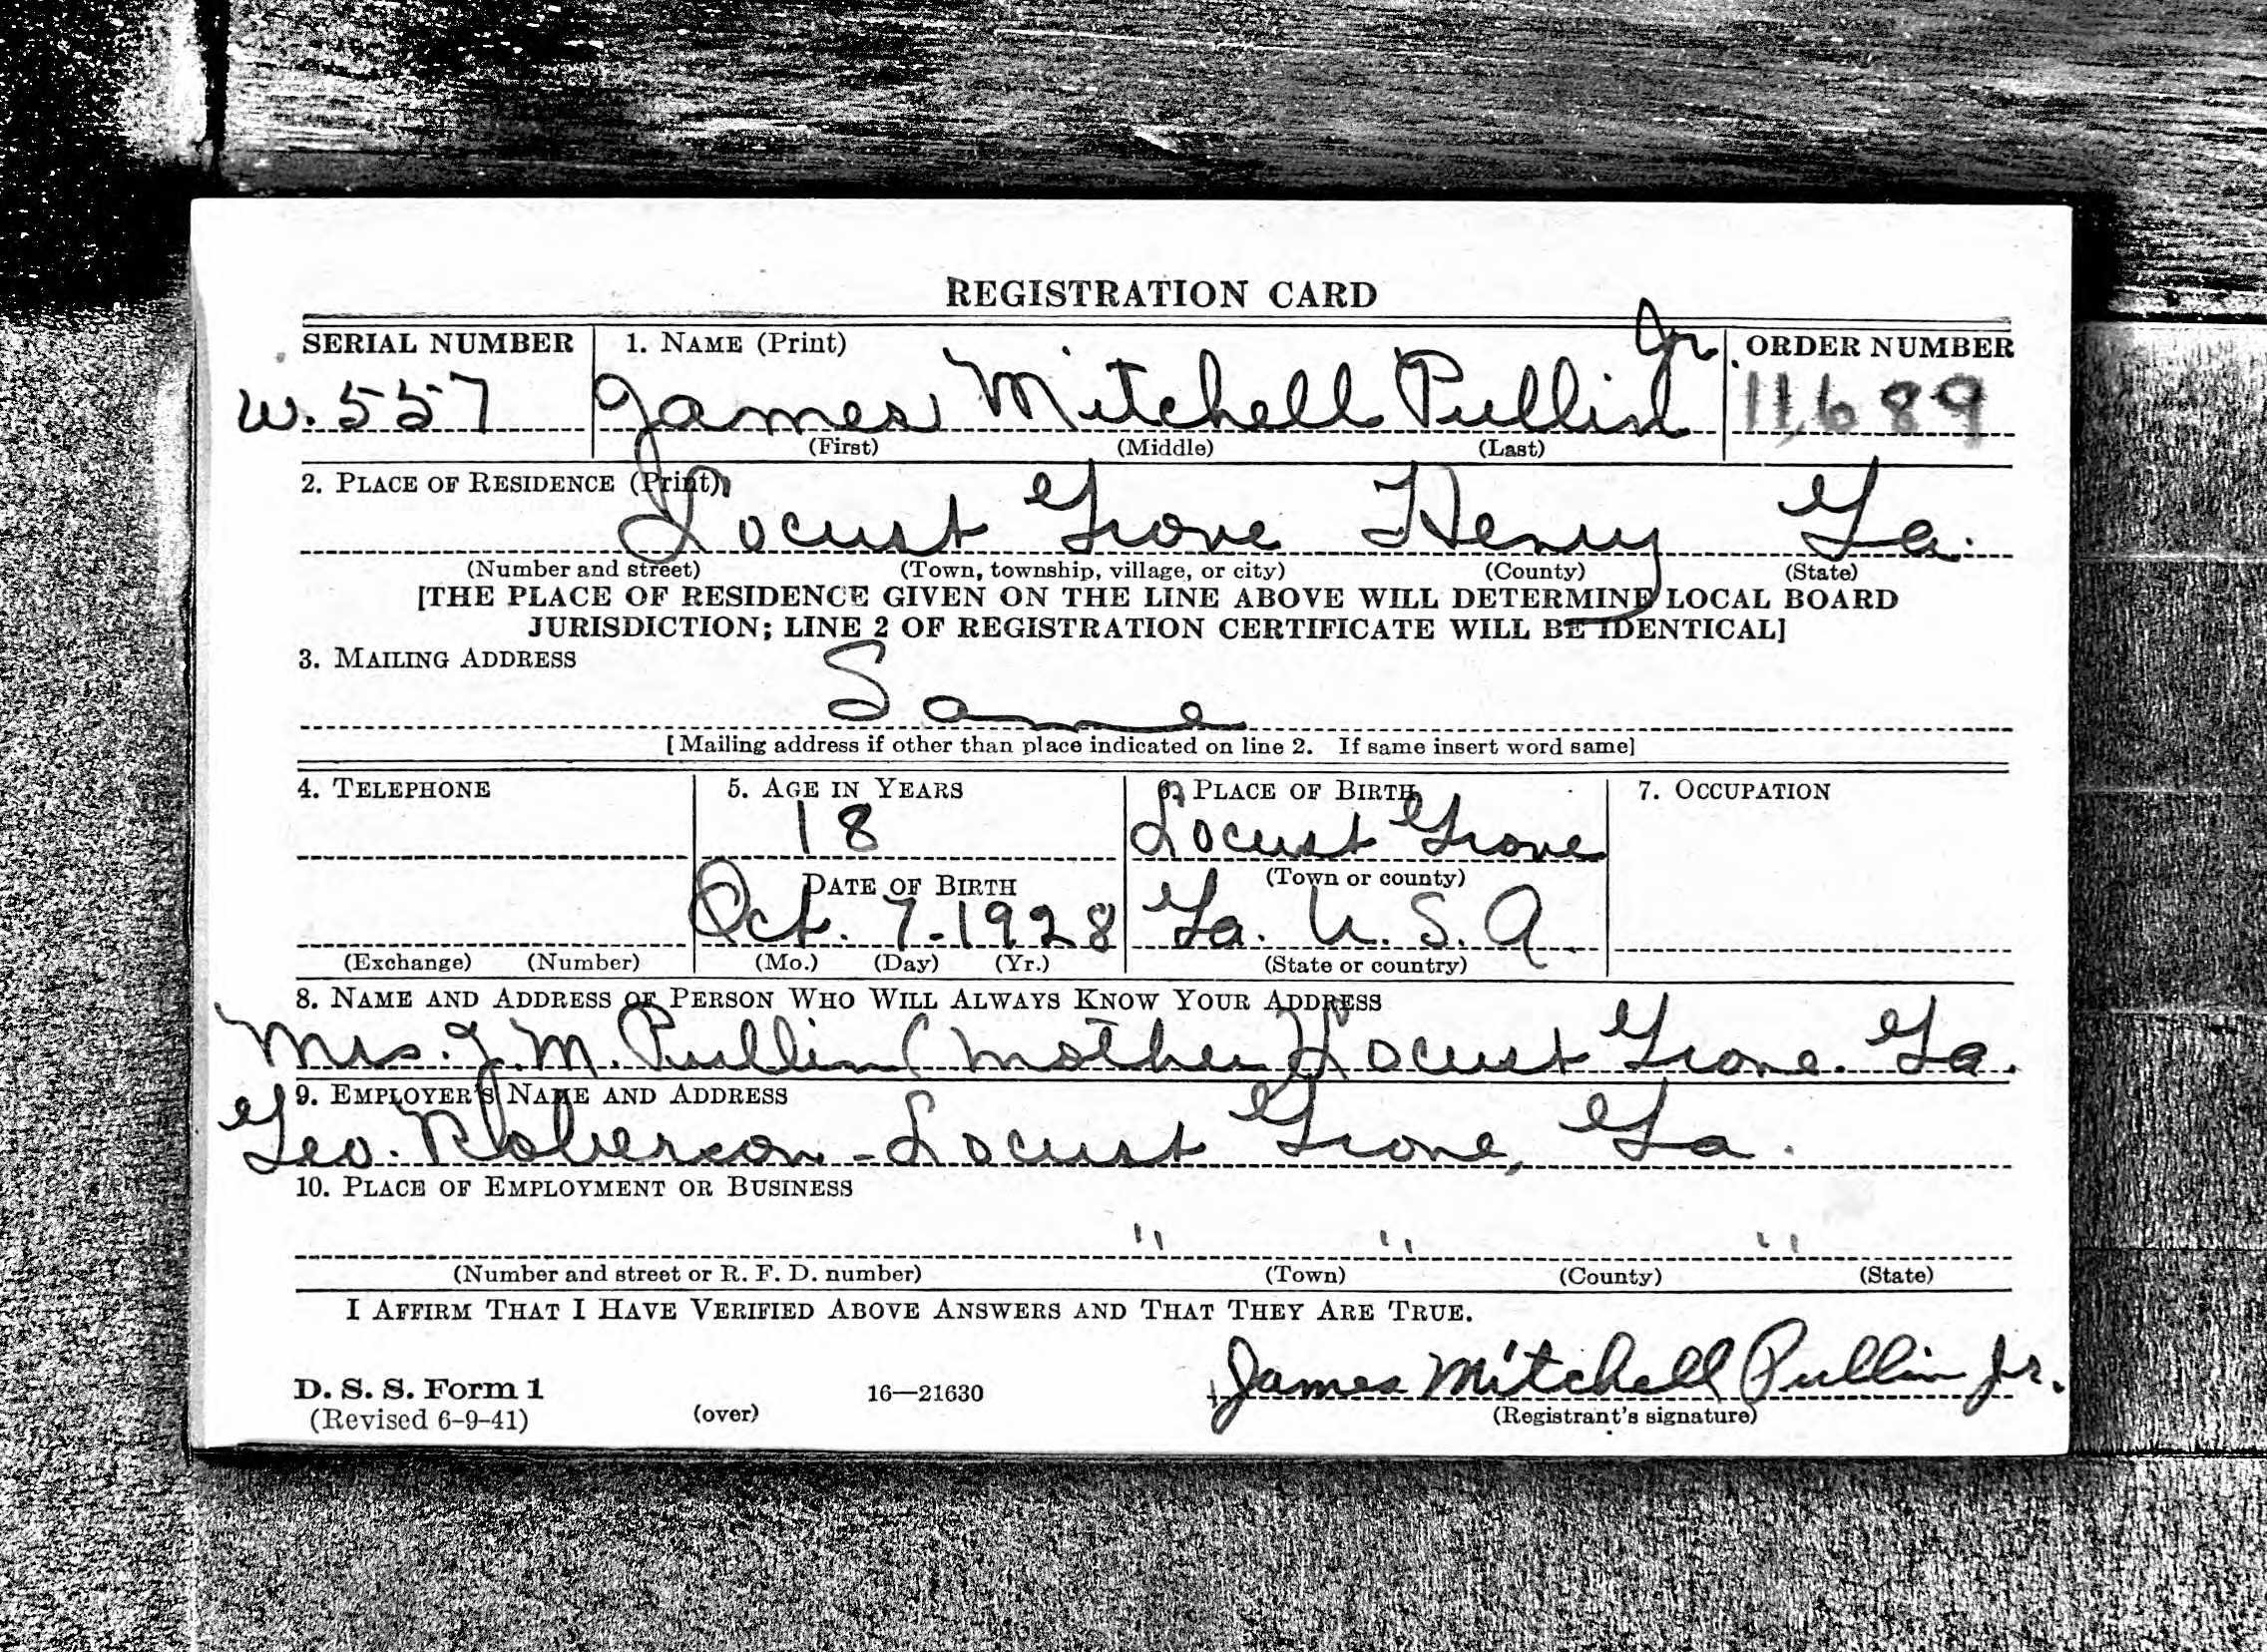 REGISTRATION CARD
SERIAL NUMBER 1. NAME (Print) Jr ORDER NUMBER
W. 557 James Mitchell Pullin 11,689
(First) (Middle) (Last)
2. PLACE OF RESIDENCE (Print)
Locust Grove Henry Ga.
(Number and street) (Town, township, village, or city) (County) (State)
[THE PLACE OF RESIDENCE GIVEN ON THE LINE ABOVE WILL DETERMINE LOCAL BOARD
JURISDICTION; LINE 2 OF REGISTRATION CERTIFICATE WILL BE IDENTICAL]
3. MAILING ADDRESS
Same
[Mailing address if other than place indicated on line 2. If same insert word same]
4. TELEPHONE 5. AGE IN YEARS 6. PLACE OF BIRTH 7. OCCUPATION
18 Locust Grove
DATE OF BIRTH (Town or county)
Oct. 7-1928 Ga. U.S.A.
(Exchange) (Number) (Mo.) (Day) (Yr.) (State or country)
8. NAME AND ADDRESS OF PERSON WHO WILL ALWAYS KNOW YOUR ADDRESS
Mrs. J. M. Pullin (Mother) Locust Grove. Ga.
9. EMPLOYER'S NAME AND ADDRESS
Geo. Roberson - Locust Grove, Ga.
10. PLACE OF EMPLOYMENT OR BUSINESS
" " "
(Number and street or R. F. D. number) (Town) (County) (State)
I AFFIRM THAT I HAVE VERIFIED ABOVE ANSWERS AND THAT THEY ARE TRUE.
James Mitchell Pullin Jr.
D. S. S. Form 1 16—21630
(Revised 6-9-41) (over) (Registrant's signature)